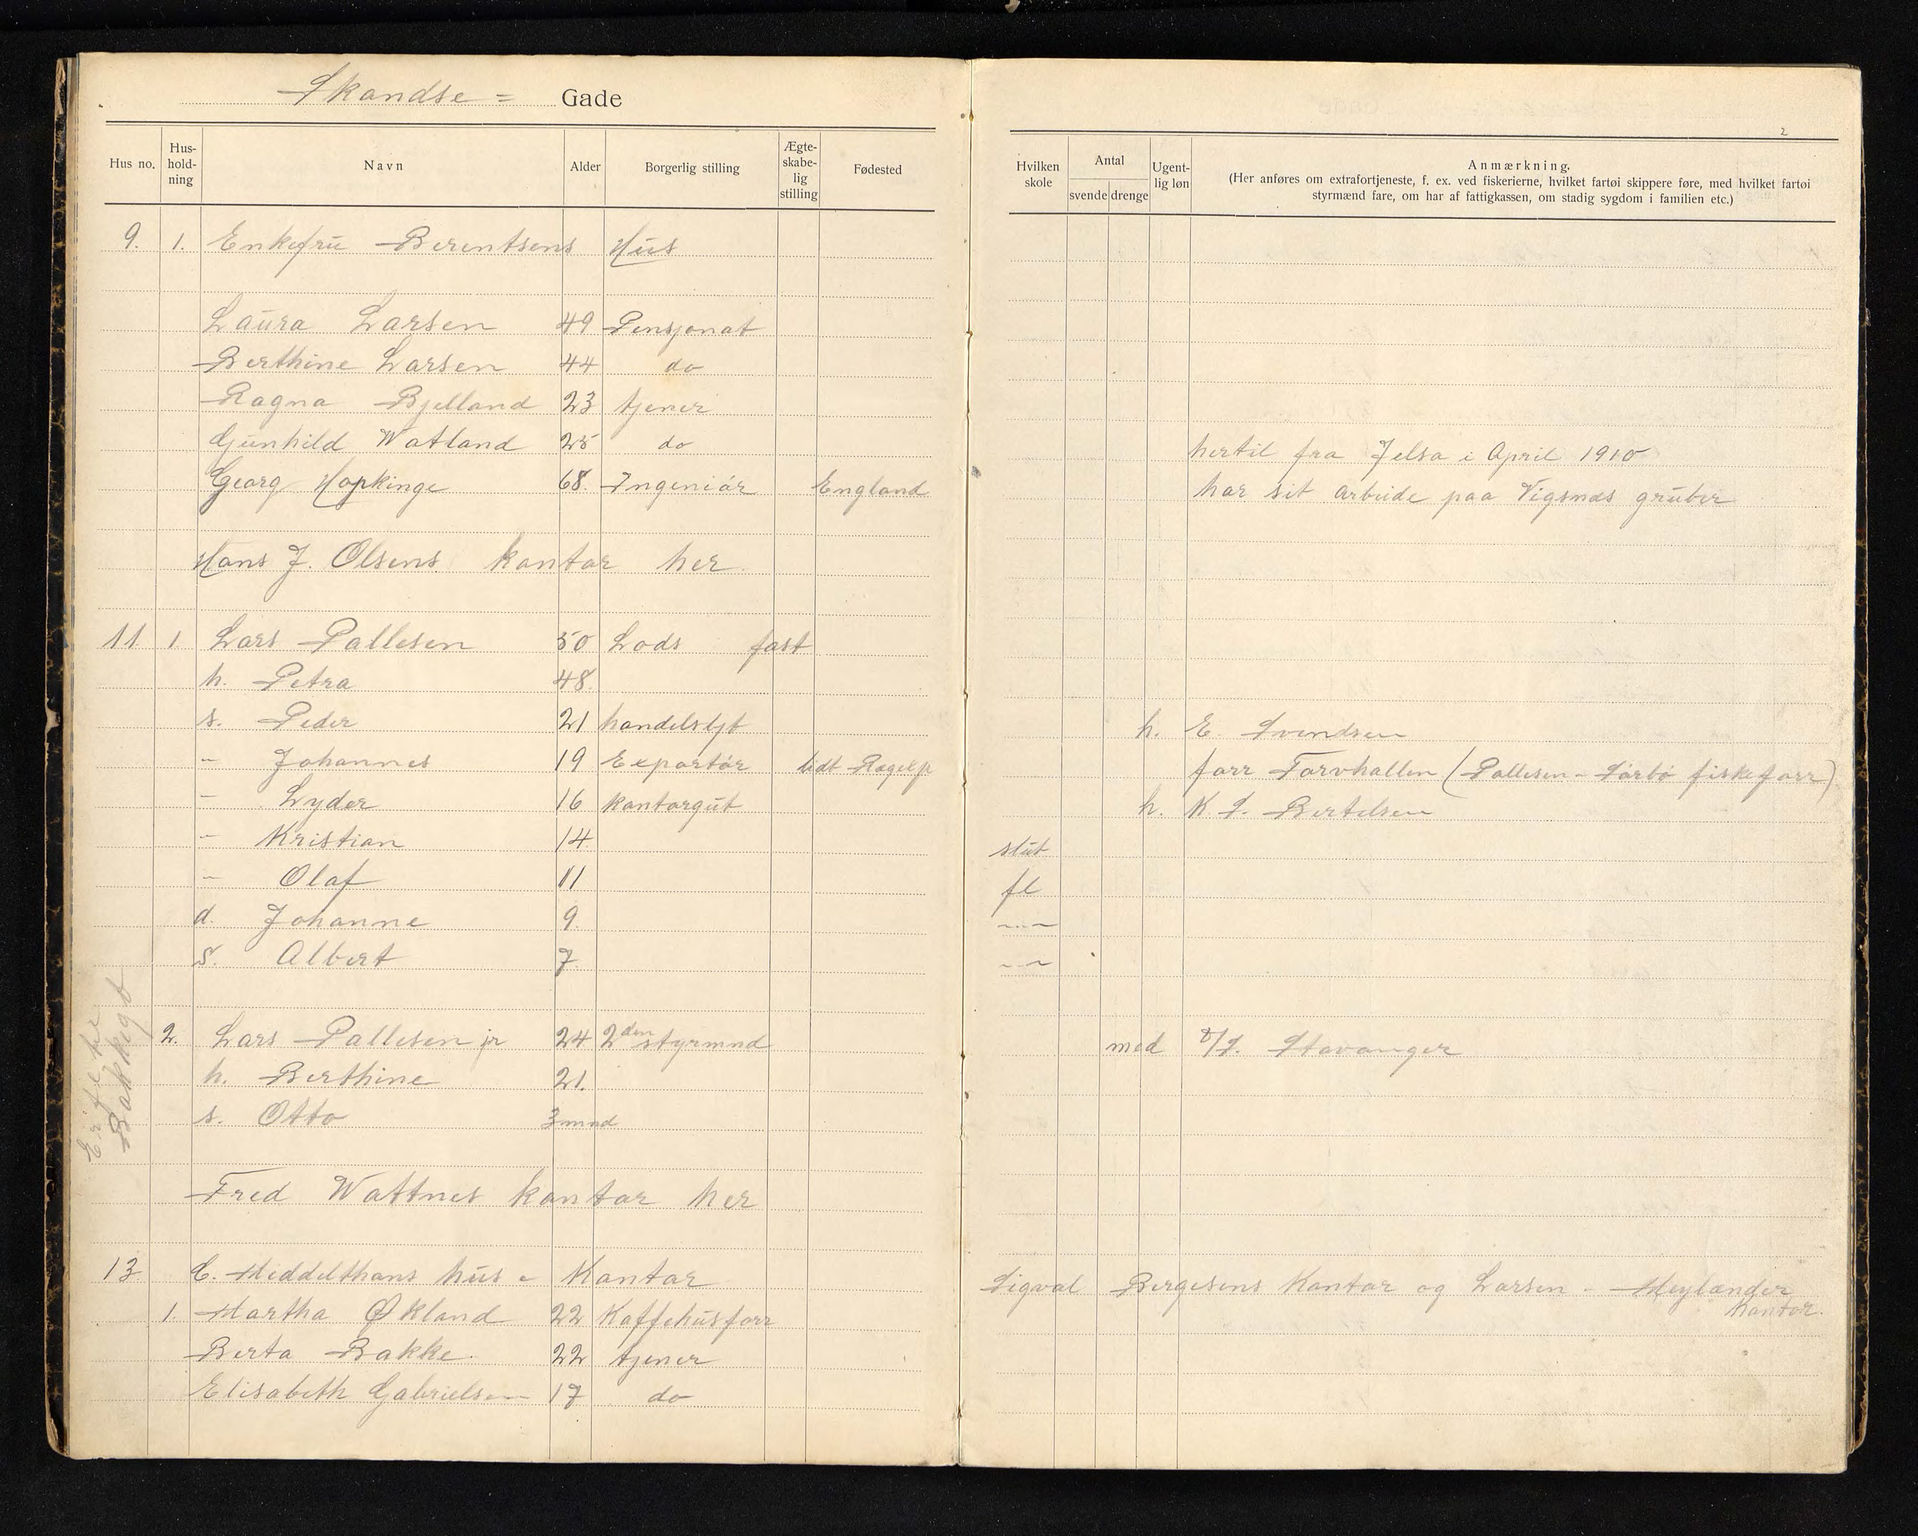 Skandse = Gade
Hus no. Hus-hold-ning Navn Alder Borgerlig stilling Ægte-skabe-lig stilling Fødested Hvilken skole Antal svende drenge Ugent-lig løn Anmærkning.
(Her anføres om extrafortjeneste, f. ex. ved fiskerierne, hvilket fartøi skippere føre, med hvilket fartøi
styrmænd fare, om har af fattigkassen, om stadig sygdom i familien etc.)
2
9. 1. Enkefru Berentsens Hus
Laura Larsen 49 Pensjonat
Berthine Larsen 44 do
Ragna Bjelland 23 tjener
Gunhild Watland 25 do hertil fra Jelsa i April 1910
Georg Hopkinge 68. Ingeniør England har sit arbeide paa Vigsnæs gruber
Hans J. Olsens kontor her
11 1 Lars Pallesen 50 Lods fast
h. Petra 48.
s. Peder 21 handelsbt h. E. Svendsen
– Johannes 19 Exportør forr Torvhallen (Pallesen – Sørbø fiskeforr)
– Lyder 16 kontorgut h. K. S. Bertelsen
– Kristian 14 slut
– Olaf 11 fl
d. Johanne 9. –"–
s. Albert 7. –"–
2. Lars Pallesen jr 24 2den styrmnd med D/S. Stavanger
h. Berthine 21.
s. Otto 3 mnd
Bakkegt
Fred Wattnes kontor her
13 C. Middelthons hus – Kontor Sigval Bergesens Kontor og Larsen – Meylænder
Kontor.
1. Martha Økland 22 Kaffehusforr
Berta Bakke. 22 tjener
Elisabeth Gabrielsen 17 do